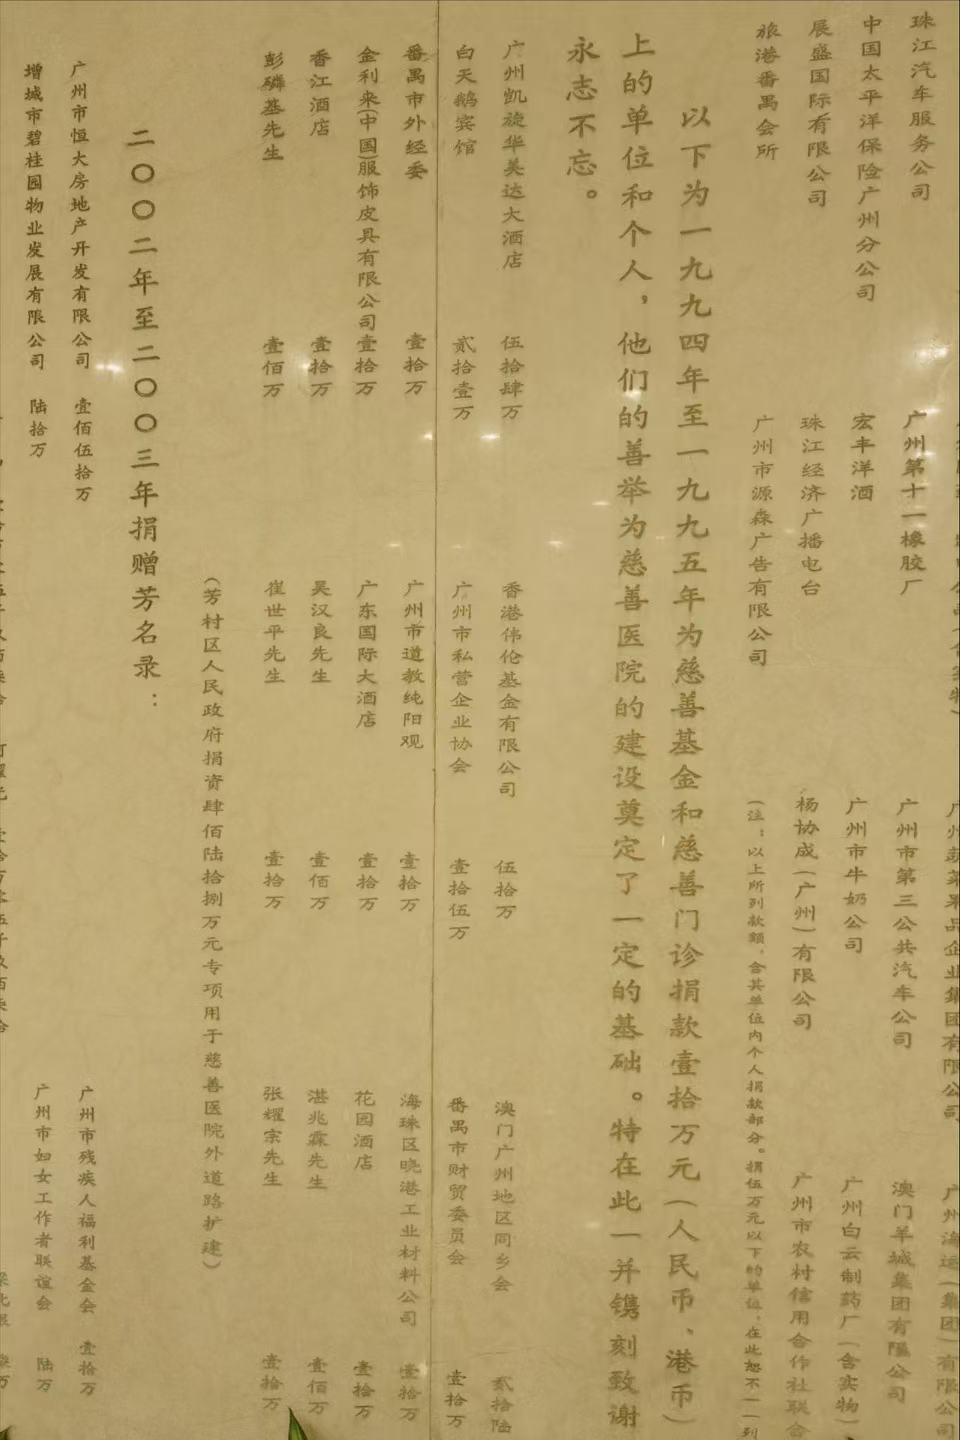 广州海运(集团)有限公司
珠江汽车服务公司 广州第十一橡胶厂 广州市第三公共汽车公司 澳门羊城集团有限公司
中国太平洋保险广州分公司 宏丰洋酒 广州市牛奶公司 广州白云制药厂(含实物)
展盛国际有限公司 珠江经济广播电台 杨协成(广州)有限公司 广州市农村信用合作社联合
旅港番禺会所 广州市源森广告有限公司 (注：以上所列款额，含其单位内个人捐款部分。捐伍万元以下的单位，在此恕不一一列
以下为一九九四年至一九九五年为慈善基金和慈善门诊捐款壹拾万元(人民币、港币)
上的单位和个人，他们的善举为慈善医院的建设奠定了一定的基础。特在此一并镌刻致谢
永志不忘。
广州凯旋华美达大酒店 伍拾肆万 香港伟伦基金有限公司 伍拾万 澳门广州地区同乡会 贰拾陆
白天鹅宾馆 贰拾壹万 广州市私营企业协会 壹拾伍万 番禺市财贸委员会 壹拾万
番禺市外经委 壹拾万 广州市道教纯阳观 壹拾万 海珠区晓港工业材料公司 壹拾万
金利来(中国)服饰皮具有限公司 壹拾万 广东国际大酒店 壹拾万 花园酒店 壹拾万
香江酒店 壹拾万 吴汉良先生 壹佰万 湛兆霖先生 壹佰万
彭磷基先生 壹佰万 崔世平先生 壹拾万 张耀宗先生 壹拾万
(芳村区人民政府捐资肆佰陆拾捌万元专项用于慈善医院外道路扩建)
二〇〇二年至二〇〇三年捐赠芳名录：
广州市恒大房地产开发有限公司 壹佰伍拾万 广州市残疾人福利基金会 壹拾万
增城市碧桂园物业发展有限公司 陆拾万 广州市妇女工作者联谊会 陆万